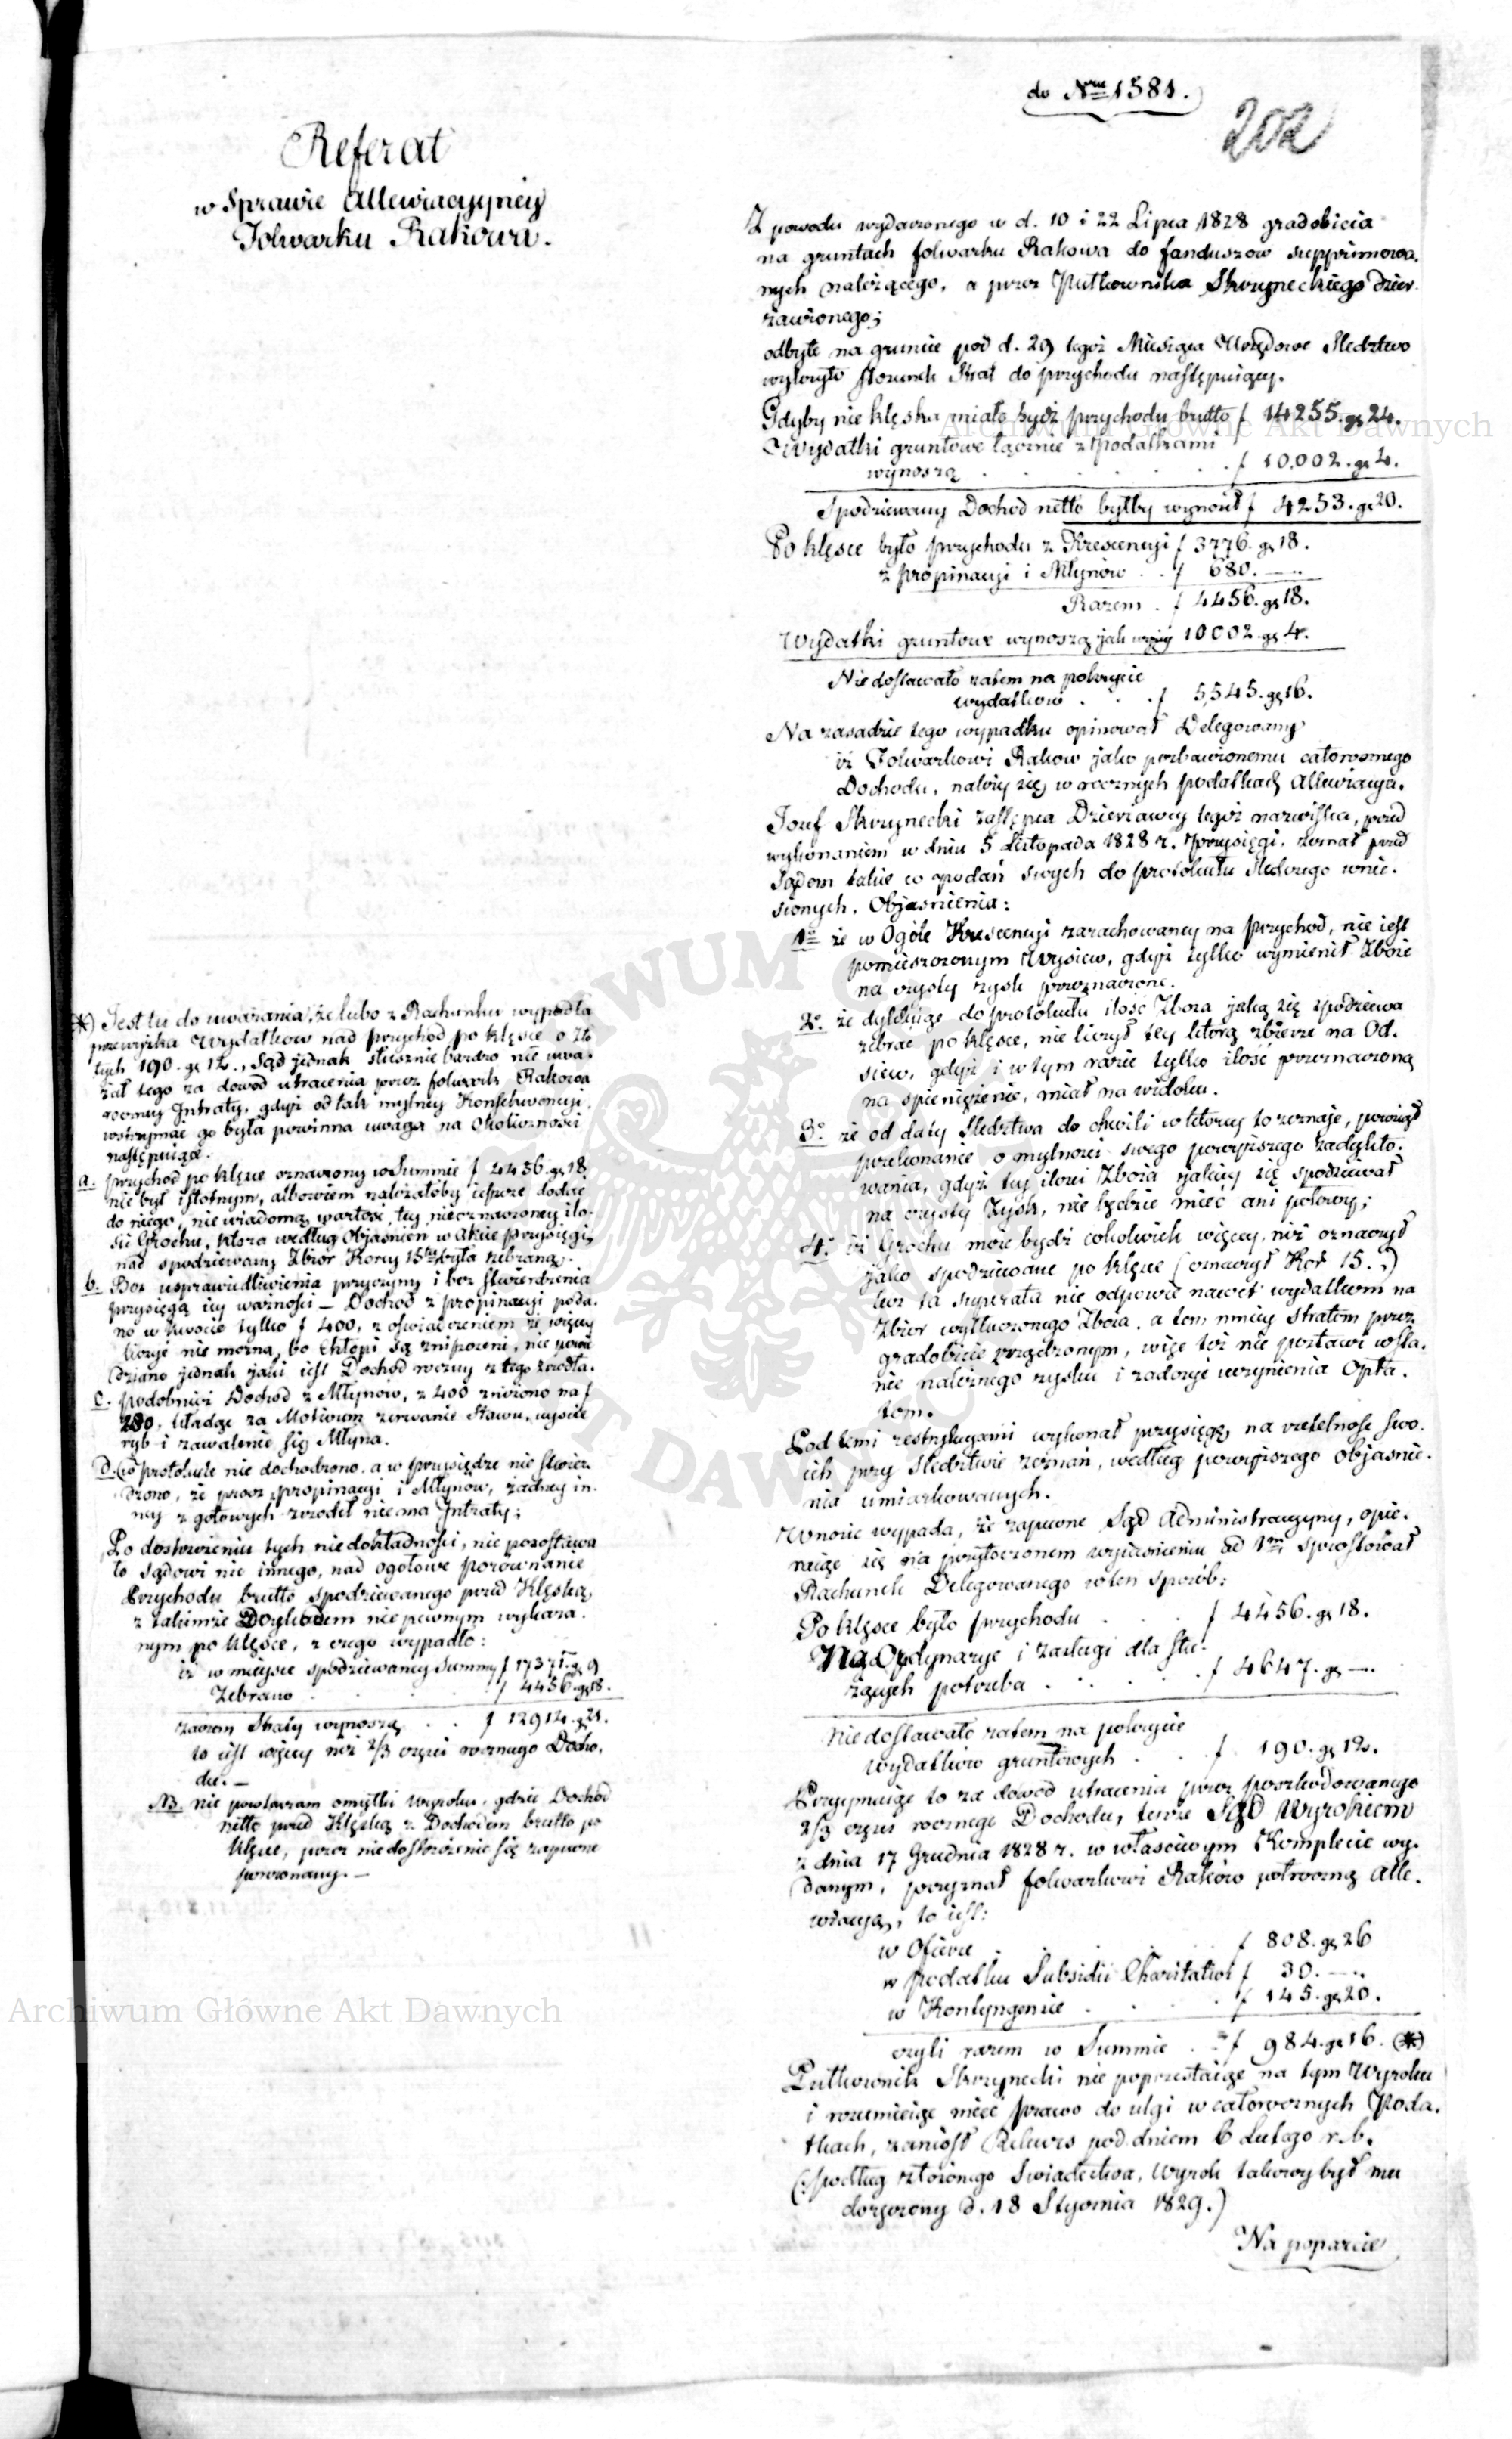 do Nru 1581.
202
Referat
w Sprawie Allewiacyyney
Folwarku Rakowa.
Z powodu wydarzonego w d. 10 i 22 Lipca 1828 gradobicia
na gruntach folwarku Rakowa do funduszow suppri­mowa.
nych należącego, a przez Pułkownika Skrzyneckiego dzier.
żawionego;
odbyte na gruncie pod d. 29 tegoż Miesiąca Urzędowe Sledztwo
wykryło stosunek Strat do przychodu następuiący.
Gdyby nie klęska miało bydź przychodu brutto f 14255. gr 24.
Wydatki gruntowe łącznie z Podatkami
wynoszą . . . . . f 10,002. gr 4.
Spodziewany Dochod netto byłby wynosił f 4253. gr 20.
Po klęsce było przychodu z Krescencyi f 3776. gr 18.
z propinacyi i Młynow . . f 680. —
Razem . f 4456. gr 18.
Wydatki gruntowe wynoszą jak wyżey 10002. gr 4.
Niedostawało zatem na pokrycie
wydatkow . . . f 5,545. gr 16.
Na zasadzie tego wypadku opiniował Delegowany
iż Folwarkowi Rakow jako pozbawionemu całorocznego
Dochodu, należy się w rocznych podatkach Allewiacya.
Jozef Skrzynecki zastępca Dzierżawcy tegoż nazwiska, przed
wykonaniem w dniu 5 Listopada 1828 r. Przysięgi, zeznał przed
Sądem takie co podań swych do protokułu Sledczego wnie.
sionych, Objasnienia:
1o że w Ogóle Krescencyi zarachowaney na przychod, nie iest
pomieszczonym Wysiew, gdyż tylko wymienił Zboże
na czysty zysk przeznaczone.
2o że dyktuiąc do protokułu ilość Zboża jaką się spodziewa
zebrać po klęsce, nie liczył tey którą zbierze na Od.
siew, gdyż i w tym razie tylko ilość przeznaczoną
na spieniężenie, miał na widoku.
3o że od daty Sledztwa do chwili w którey to zeznaje, powziął
przekonanie o mylności swego powyższego zadykto.
wania, gdyż tey ilości Zboża jakiey się spodziewał
na czysty Zysk, nie będzie mieć ani połowy;
4o iż Grochu może bydź cokolwiek więcey, niż oznaczył
jako spodziewane po klęsce (oznaczył Kor 15.)
lecz ta superata nie odpowie nawet wydatkom na
Zbior wytłuczonego Zboża, a tem mniey stratom przez
gradobicie zrządzonym, więc też nie postawi w sta.
nie należnego zysku i zadosyć uczynienia Opła.
tom.
Pod temi restrykcyami wykonał przysięgę, na rzetelność swo.
ich przy Sledztwie zeznań, według powyższego objasnie.
nia umiarkowanych.
Wnosić wypada, że zapewne Sąd Administracyyny, opie.
raiąc się na przytoczonem wyiasnieniu ad 1m sprostował
Rachunek Delegowanego w ten sposób:
Po klęsce było przychodu . . . f 4456. gr 18.
Na Ordynarye i zasługi dla słu.
żących potrzeba . . . . . f 4647. gr —.
niedostawało zatem na pokrycie
wydatków gruntowych . . . f 190. gr 12.
Przyymuiąc to za dowod utracenia przez poszkodowanego
2/3 części rocznego Dochodu, tenże Sąd Wyrokiem
z dnia 17 Grudnia 1828 r. w własciwym Komplecie wy.
danym, przyznał folwarkowi Raków połroczną Alle.
wiacyą, to iest:
w Ofierze . . . . f 808. gr 26
w podatku Subsidii Charitativi f 30. —.
w Kontyngensie . . . . f 145. gr 20.
czyli razem w Summie . . f 984. gr 16. (*)
Pułkownik Skrzynecki nie poprzestaiąc na tym Wyroku
i rozumieiąc mieć prawo do ulgi w całorocznych Poda.
tkach, zaniosł Rekurs pod dniem 6 Lutego r. b.
(podług złożonego Swiadectwa, Wyrok takowy był mu
doręczony d. 18 Stycznia 1829.)
Na poparcie
*) Jest tu do uważania, że lubo z Rachunku wypadła
przewyżka Wydatkow nad przychod po klęsce o zło
tych 190. gr 12., Sąd jednak słusznie bardzo nie uwa.
żał tego za dowod utracenia przez folwark Rakowa
roczney Intraty, gdyż od tak mylney Konsekwencyi,
wstrzymać go była powinna uwaga na Okoliczności
następuiące.
a. przychod po klęsce oznaczony w Summie f 4456. gr 18
nie był istotnym, albowiem należałoby ieszcze dodać
do niego, niewiadomą wartość, tey nieoznaczoney ilo.
ści Grochu, ktora według Objasnień w Akcie przysięgi,
nad spodziewany Zbiór Korcy 15stu była zebraną.
b. Bez usprawiedliwienia przyczyny i bez stwierdzenia
przysięgą iey ważności — Dochod z propinacyi poda.
no w kwocie tylko f 400, z oświadczeniem że więcey
liczyć nie można, bo Chłopi są zniszczeni, nie powie
dziano jednak jaki iest Dochod roczny z tego zrodła.
c. podobnież Dochod z Młynow, z 400 zniżono na f
280, kładąc za Motivum zerwanie Stawu, wyscie
ryb i zawalenie się Młyna.
d. W protokule nie dochodzono, a w przysiędze nie stwier.
dzono, że procz propinacyi i Młynow, żadney in.
ney z gotowych zrodeł nie ma Intraty;
Po dostrzeżeniu tych niedokładności, nie pozostawa
ło Sądowi nic innego, nad ogołowe porównanie
Przychodu brutto spodziewanego przed Klęską,
z takimże Dochodem niepewnym wykaza.
nym po klęsce, z czego wypadło:
iż w mieysce spodziewaney Summy f 17371. gr 9
Zebrano . . . . . f 4456. gr 18.
zaczem Straty wynoszą . . f 12914. gr 21.
to iest więcey niż 2/3 części rocznego Docho.
du. —
NB. nie powtarzam omyłki Wyroku, gdzie Dochod
netto przed Klęską z Dochodem brutto po
klęsce, przez niedostrzeżenie się zapewne
porownany. —
Archiwum Główne Akt Dawnych
Archiwum Główne Akt Dawnych